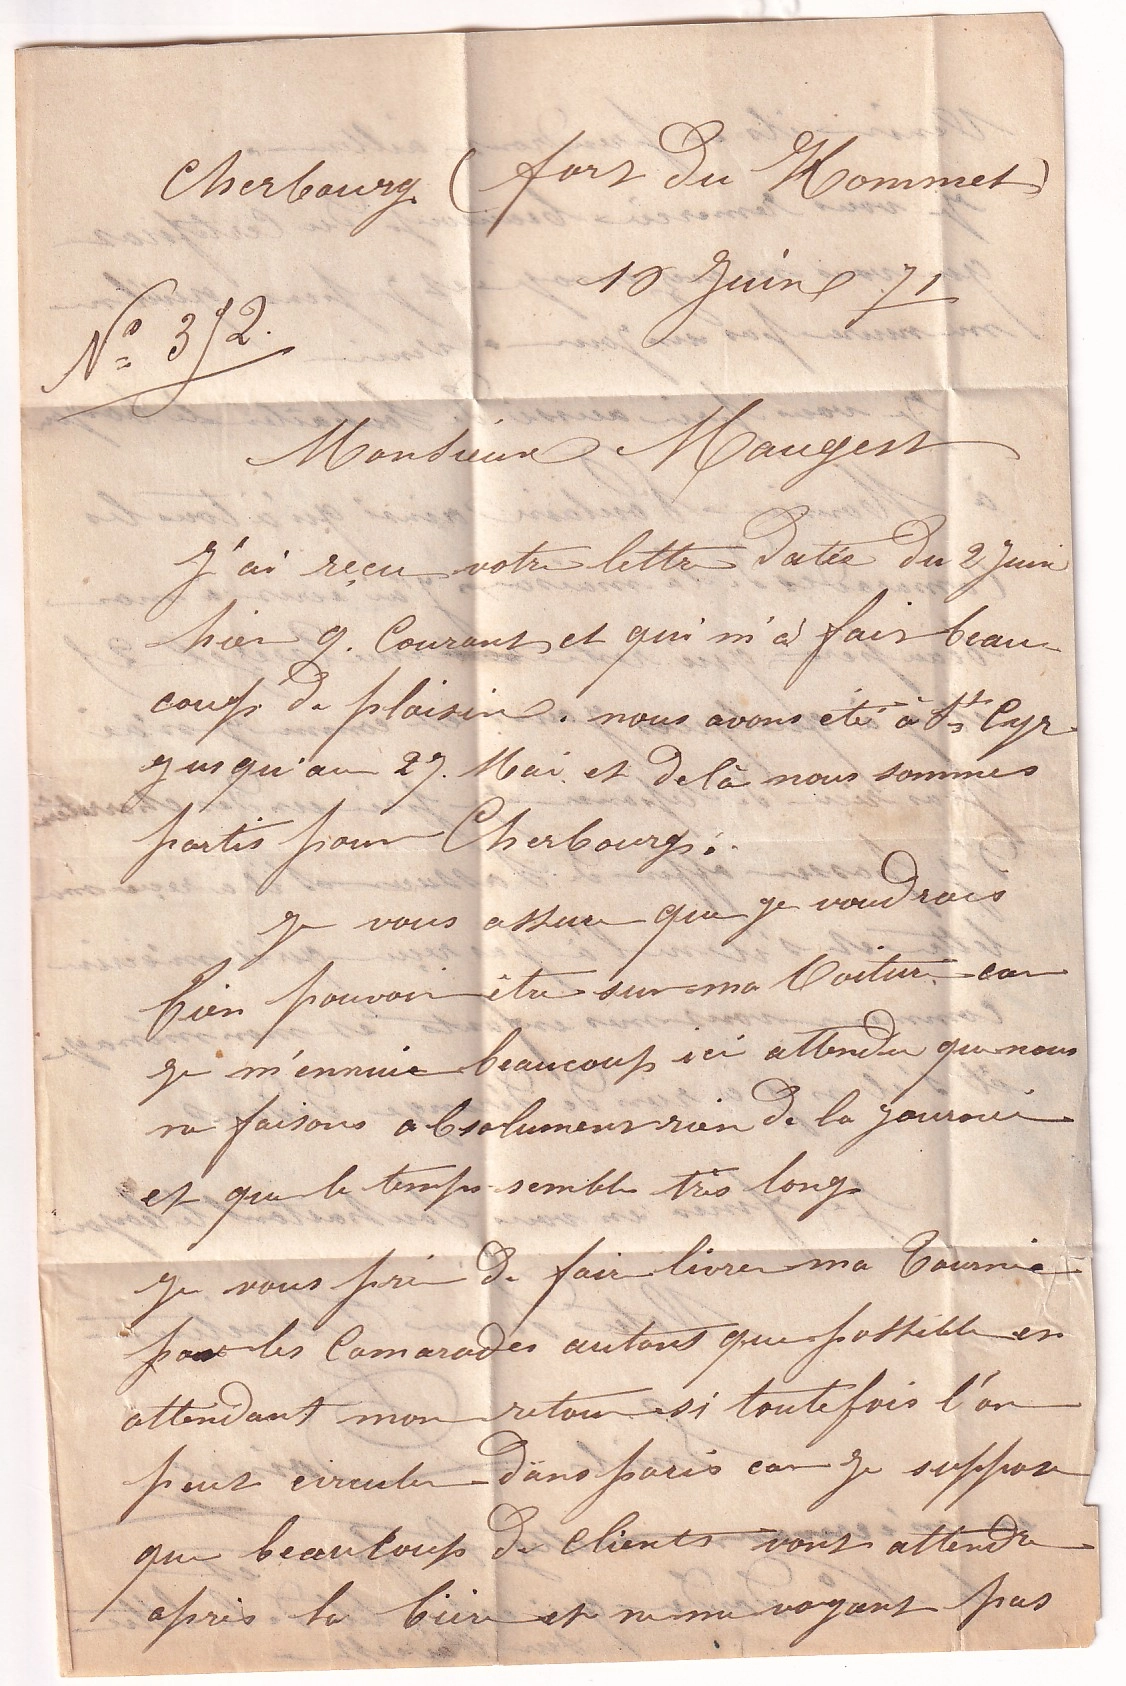 Cherbourg (fort du Hommet)
10 Juin 71
N° 392.
Monsieur Maugest
J'ai reçu votre lettre datée du 2 Juin
hier 9. Courant et qui m'a fait beau-
coup de plaisir. nous avons été à St Cyr
jusqu'au 27. Mai. et de là nous sommes
partis pour Cherbourg.
je vous assure que je voudrais
bien pouvoir être sur ma Voiture car
je m'ennuie beaucoup ici attendu que nous
ne faisons absolument rien de la journée
et que le temps semble très long
je vous prie de faire livrer ma Tournée
par les Camarades autant que possible en
attendant mon retour si toutefois l'on
peut circuler dans paris car je suppose
que beaucoup de Clients vont attendre
après la bière et ne me voyant pas